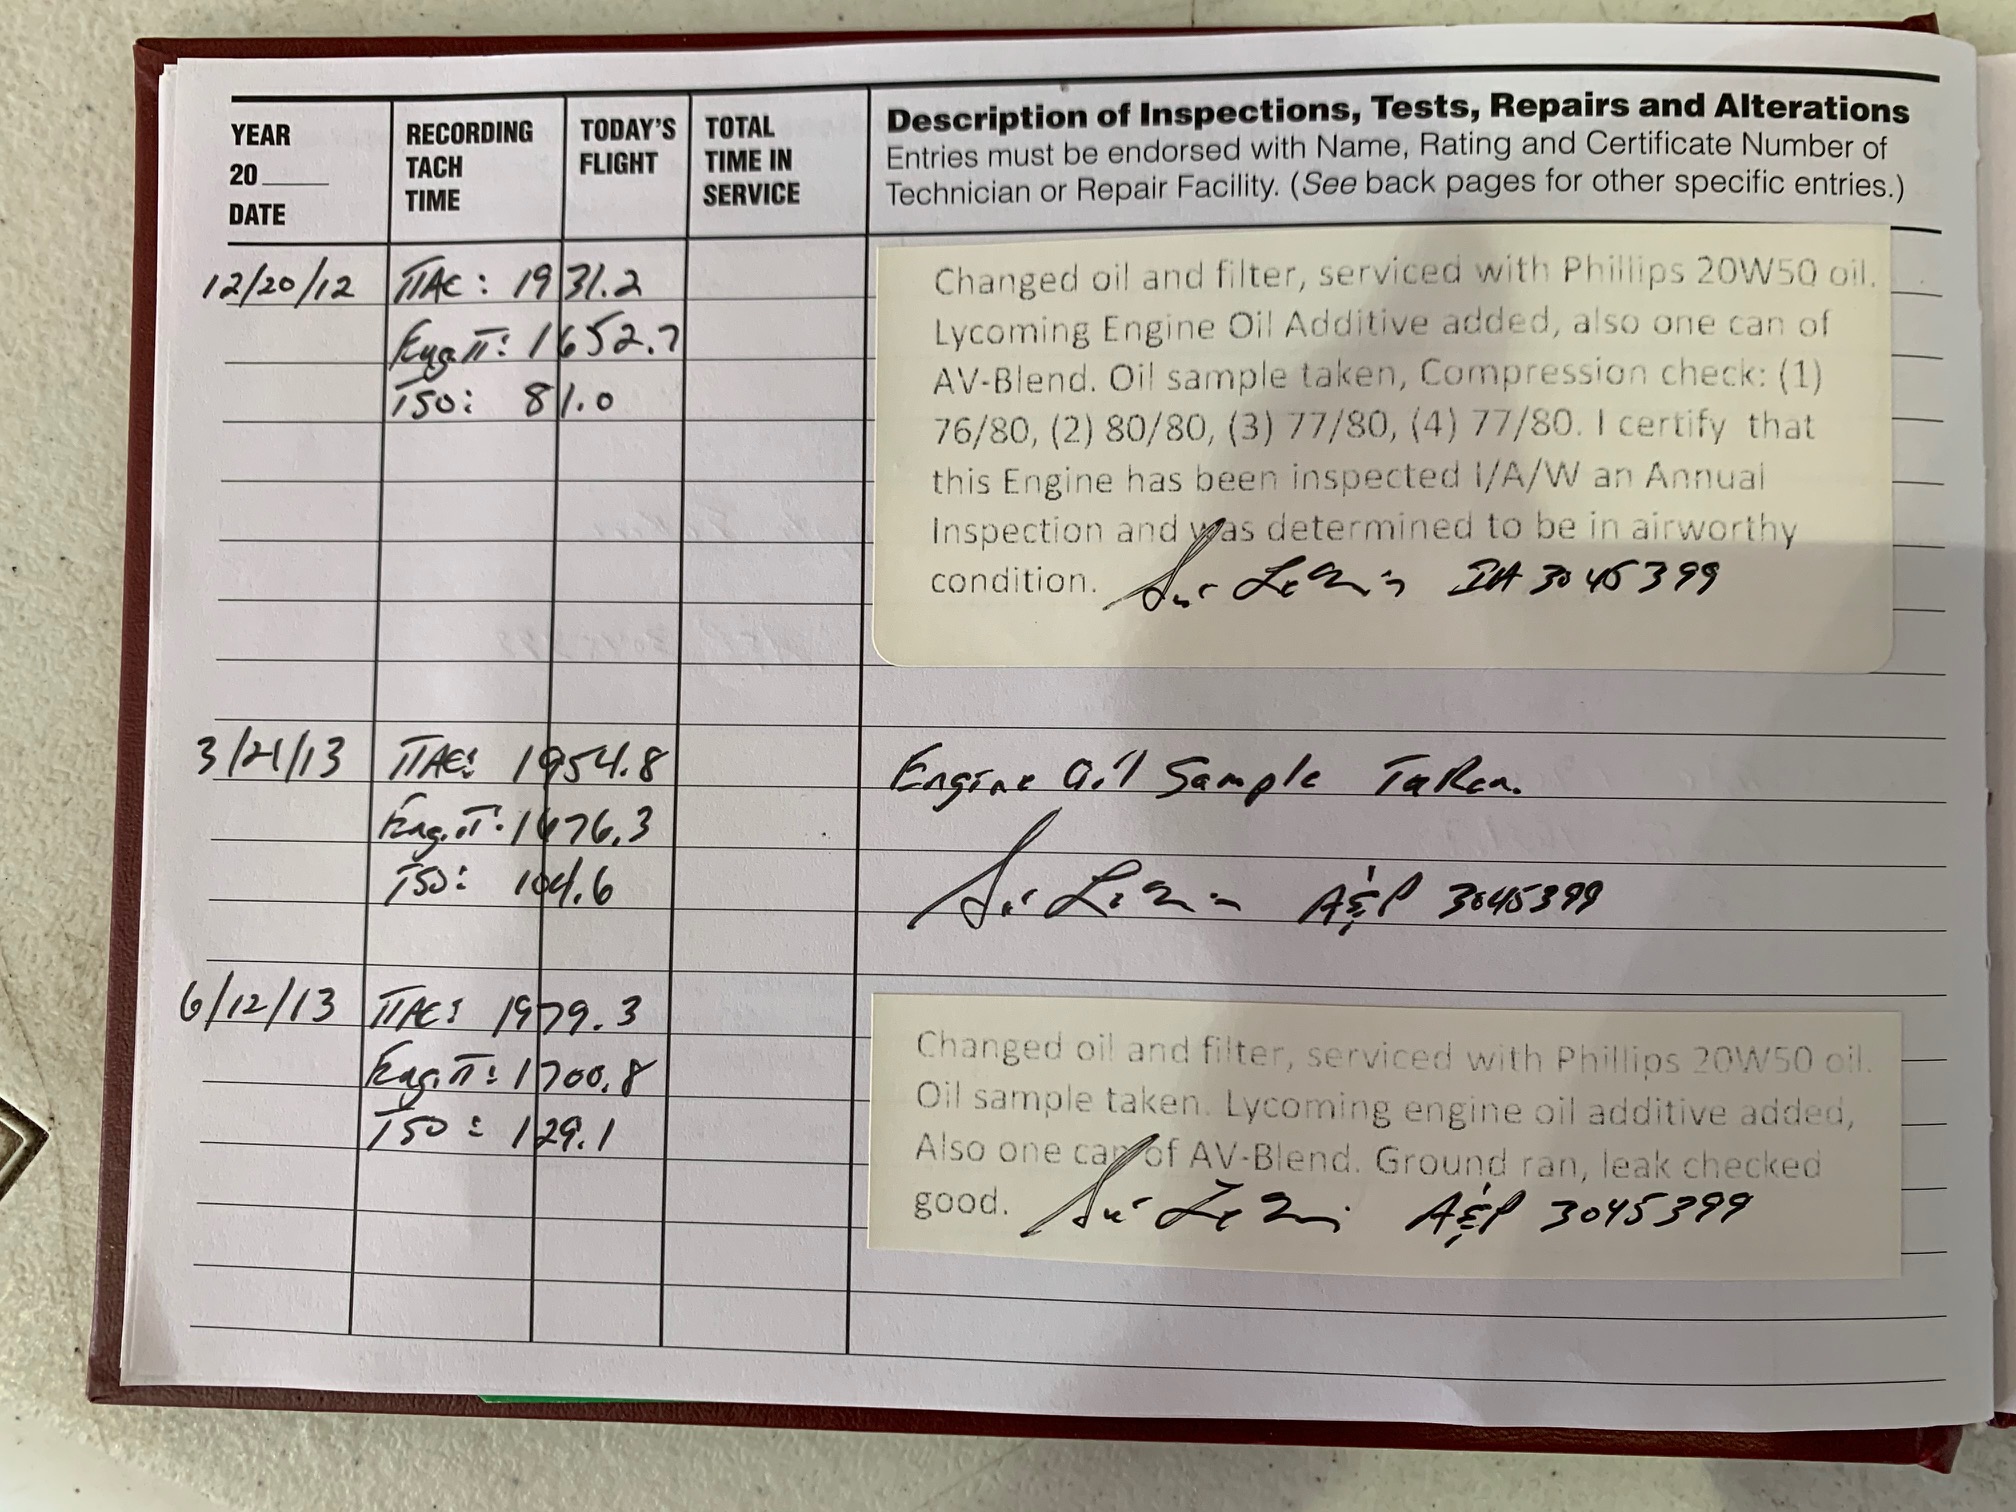 YEAR
20____
DATE
RECORDING
TACH
TIME
TODAY'S
FLIGHT
TOTAL
TIME IN
SERVICE
Description of Inspections, Tests, Repairs and Alterations
Entries must be endorsed with Name, Rating and Certificate Number of
Technician or Repair Facility. (See back pages for other specific entries.)
12/20/12
TTAC: 1931.2
Eng TT: 1652.7
TSO: 81.0
Changed oil and filter, serviced with Phillips 20W50 oil.
Lycoming Engine Oil Additive added, also one can of
AV-Blend. Oil sample taken, Compression check: (1)
76/80, (2) 80/80, (3) 77/80, (4) 77/80. I certify that
this Engine has been inspected I/A/W an Annual
Inspection and was determined to be in airworthy
condition. IA 3045399
3/21/13
TTAC: 1954.8
Eng. TT: 1676.3
TSO: 104.6
Engine Oil Sample Taken.
A&P 3045399
6/12/13
TTAC: 1979.3
Eng. TT: 1700.8
TSO: 129.1
Changed oil and filter, serviced with Phillips 20W50 oil.
Oil sample taken. Lycoming engine oil additive added,
Also one can of AV-Blend. Ground ran, leak checked
good. A&P 3045399